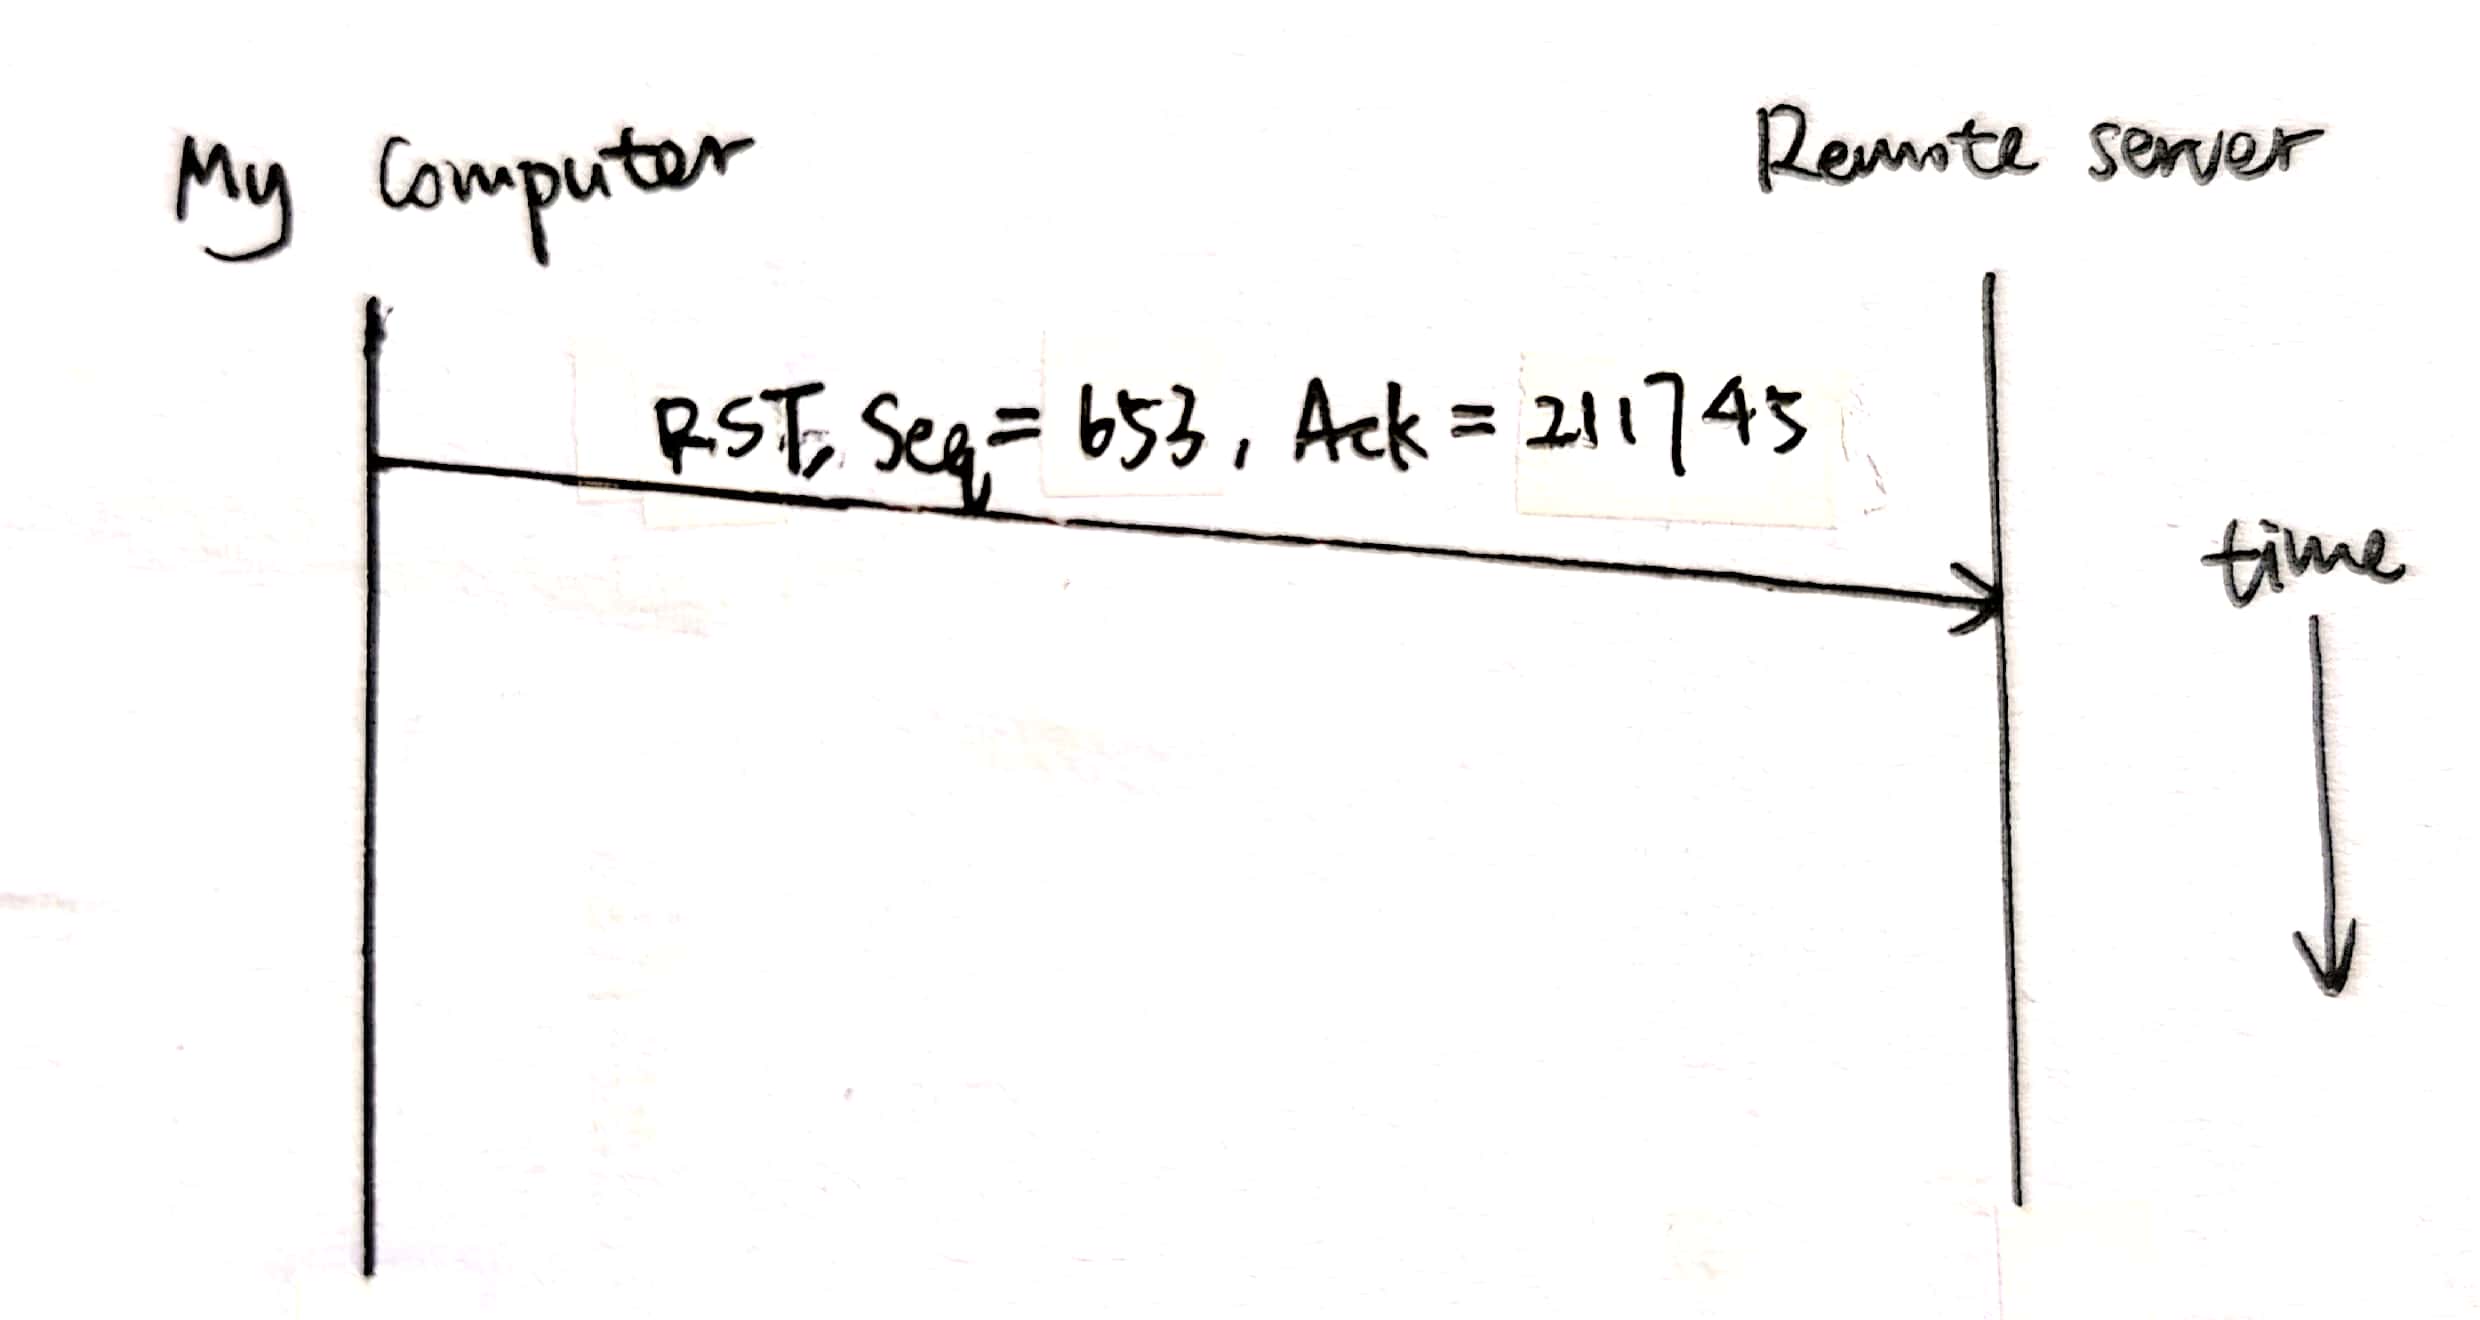 My Computer
Remote server
RST, Seq = 653, Ack = 211745
time